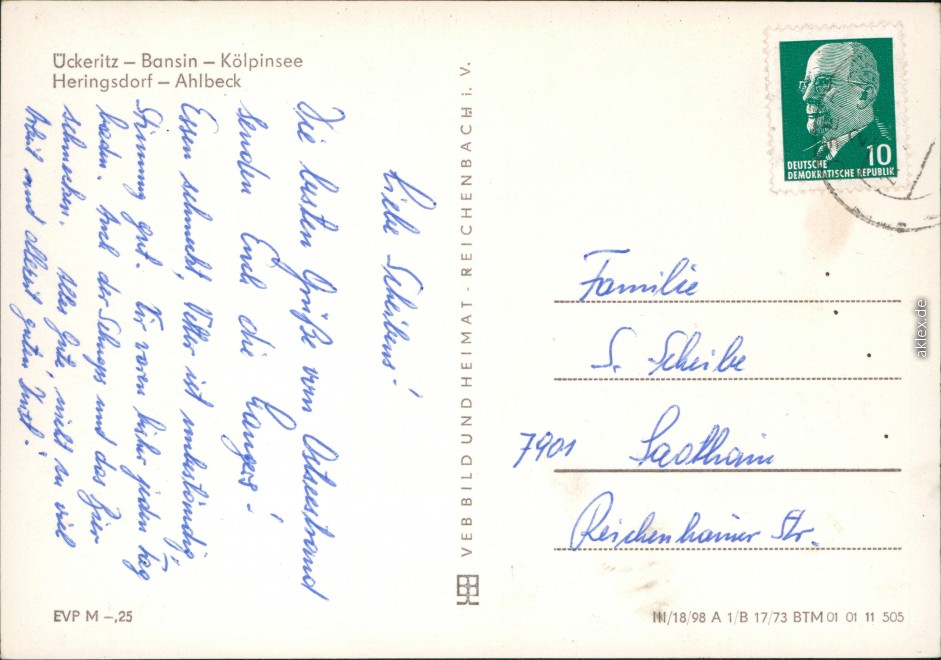 Ückeritz – Bansin – Kölpinsee
Heringsdorf – Ahlbeck
Liebe Scheibens!
Die besten Grüße vom Ostseestrand
senden Euch die Langes!
Essen schmeckt, Wetter ist unbeständig,
Stimmung gut. Wir waren bisher jeden Tag
baden. Auch der Schnaps und das Bier
schmecken. Alles Gute, nicht zu viel
Arbeit und allzeit guten Durst.
VEB BILD UND HEIMAT · REICHENBACH i. V.
10
DEUTSCHE
DEMOKRATISCHE REPUBLIK
Familie
S. Scheibe
7901 Saathain
Reichenhainer Str.
EVP M –,25
III/18/98 A 1/B 17/73 BTM 01 01 11 505
aklex.de